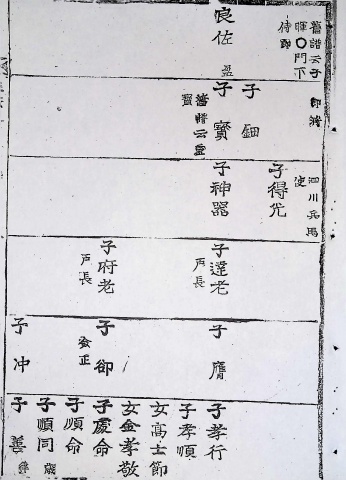 舊譜云子
暉〇門下
侍郎
良佐
郎將
子鈿
子寶
舊譜云
四川兵馬
使
子得光
子神器
子達老
戶長
子府老
戶長
子膺
子卻
子冲
子孝行
子孝順
女高士節
女金孝敬
子處命
子順命
子順同
子善